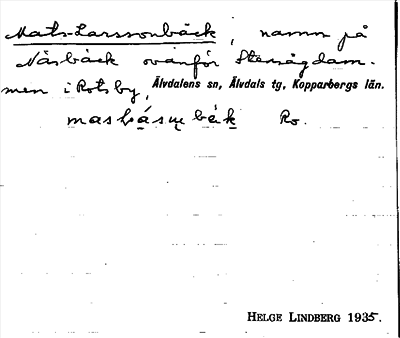 Mats-Larssonbäck, namn på
Näsbäck ovanför Stensågdam-
men i Rotsby, Älvdalens sn, Älvdals tg, Kopparbergs län.
Ro.
HELGE LINDBERG 1935.